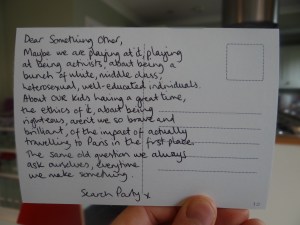 Dear Something Other,
Maybe we are playing at it, playing
at being activists, about being a
bunch of white, middle class,
heterosexual, well-educated individuals.
About our kids having a great time,
the ethics of it, about being
righteous, aren't we so brave and
brilliant, of the impact of actually
travelling to Paris in the first place.
The same old question we always
ask ourselves, everytime
we make something.
Search Party x